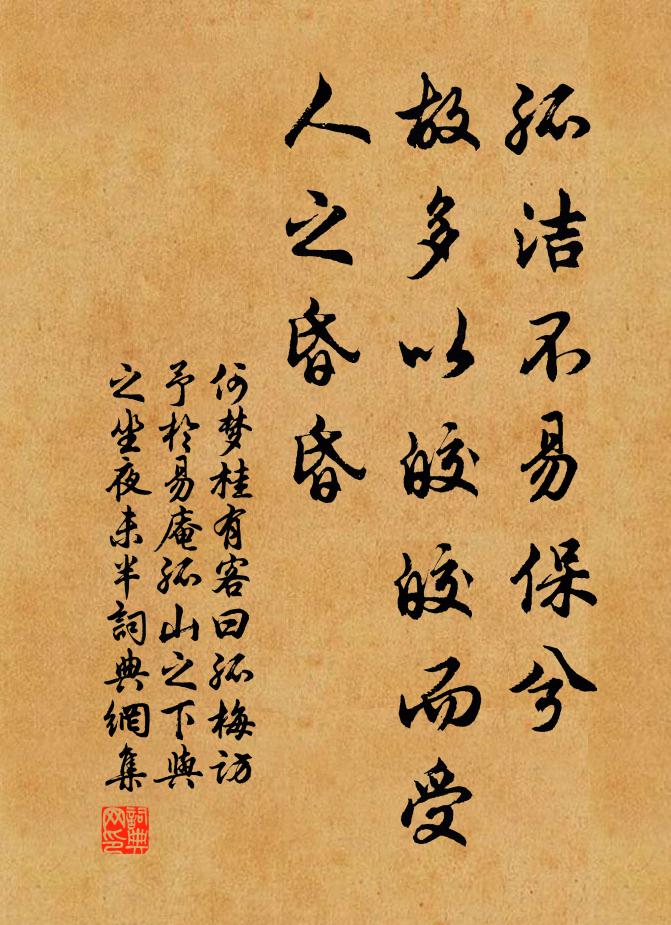 孤洁不易保兮
故多以皎皎而受
人之昏昏
何梦桂有客曰孤梅访
予於易庵孤山之下与
之坐夜未半詞典網集
詞典网印